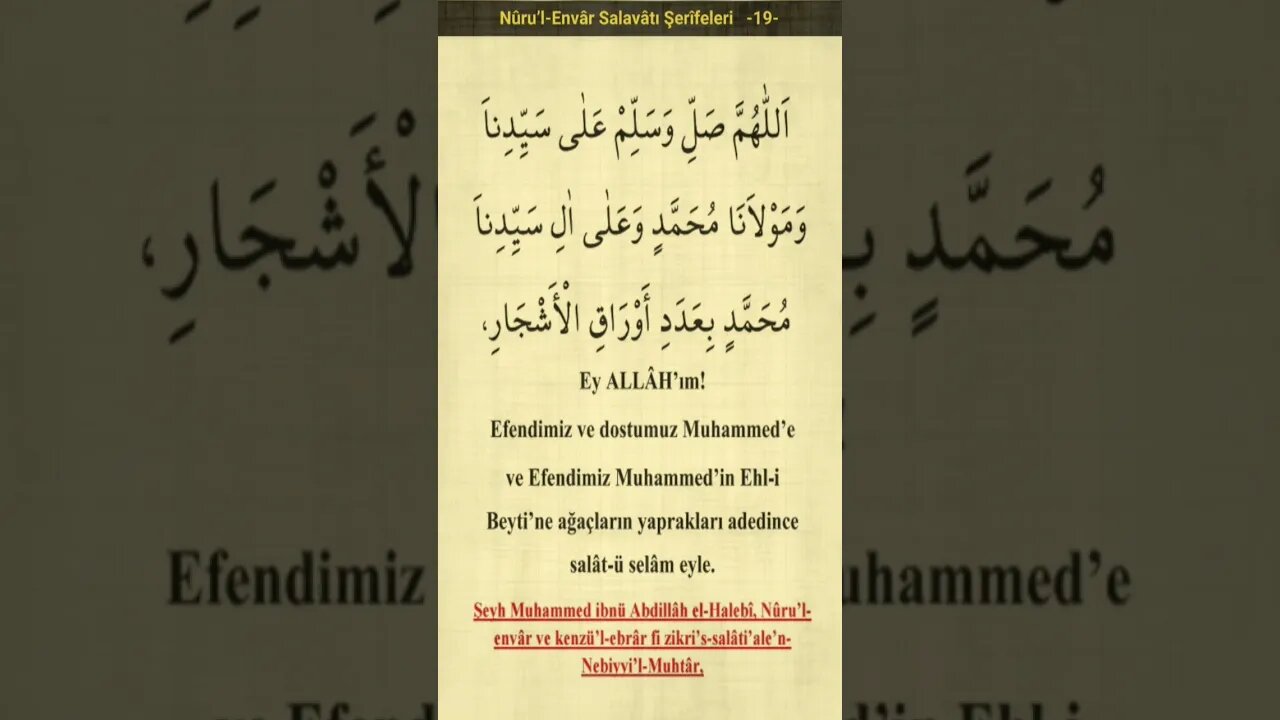 Nûru’l-Envâr Salavâtı Şerîfeleri -19-
اَللّٰهُمَّ صَلِّ وَسَلِّمْ عَلٰى سَيِّدِناَ
وَمَوْلاَنَا مُحَمَّدٍ وَعَلٰى اٰلِ سَيِّدِناَ
مُحَمَّدٍ بِعَدَدِ أَوْرَاقِ الْأَشْجَارِ،
Ey ALLÂH’ım!
Efendimiz ve dostumuz Muhammed’e
ve Efendimiz Muhammed’in Ehl-i
Beyti’ne ağaçların yaprakları adedince
salât-ü selâm eyle.
Şeyh Muhammed ibnü Abdillâh el-Halebî, Nûru’l-
envâr ve kenzü’l-ebrâr fî zikri’s-salâti’ale’n-
Nebiyyi’l-Muhtâr,